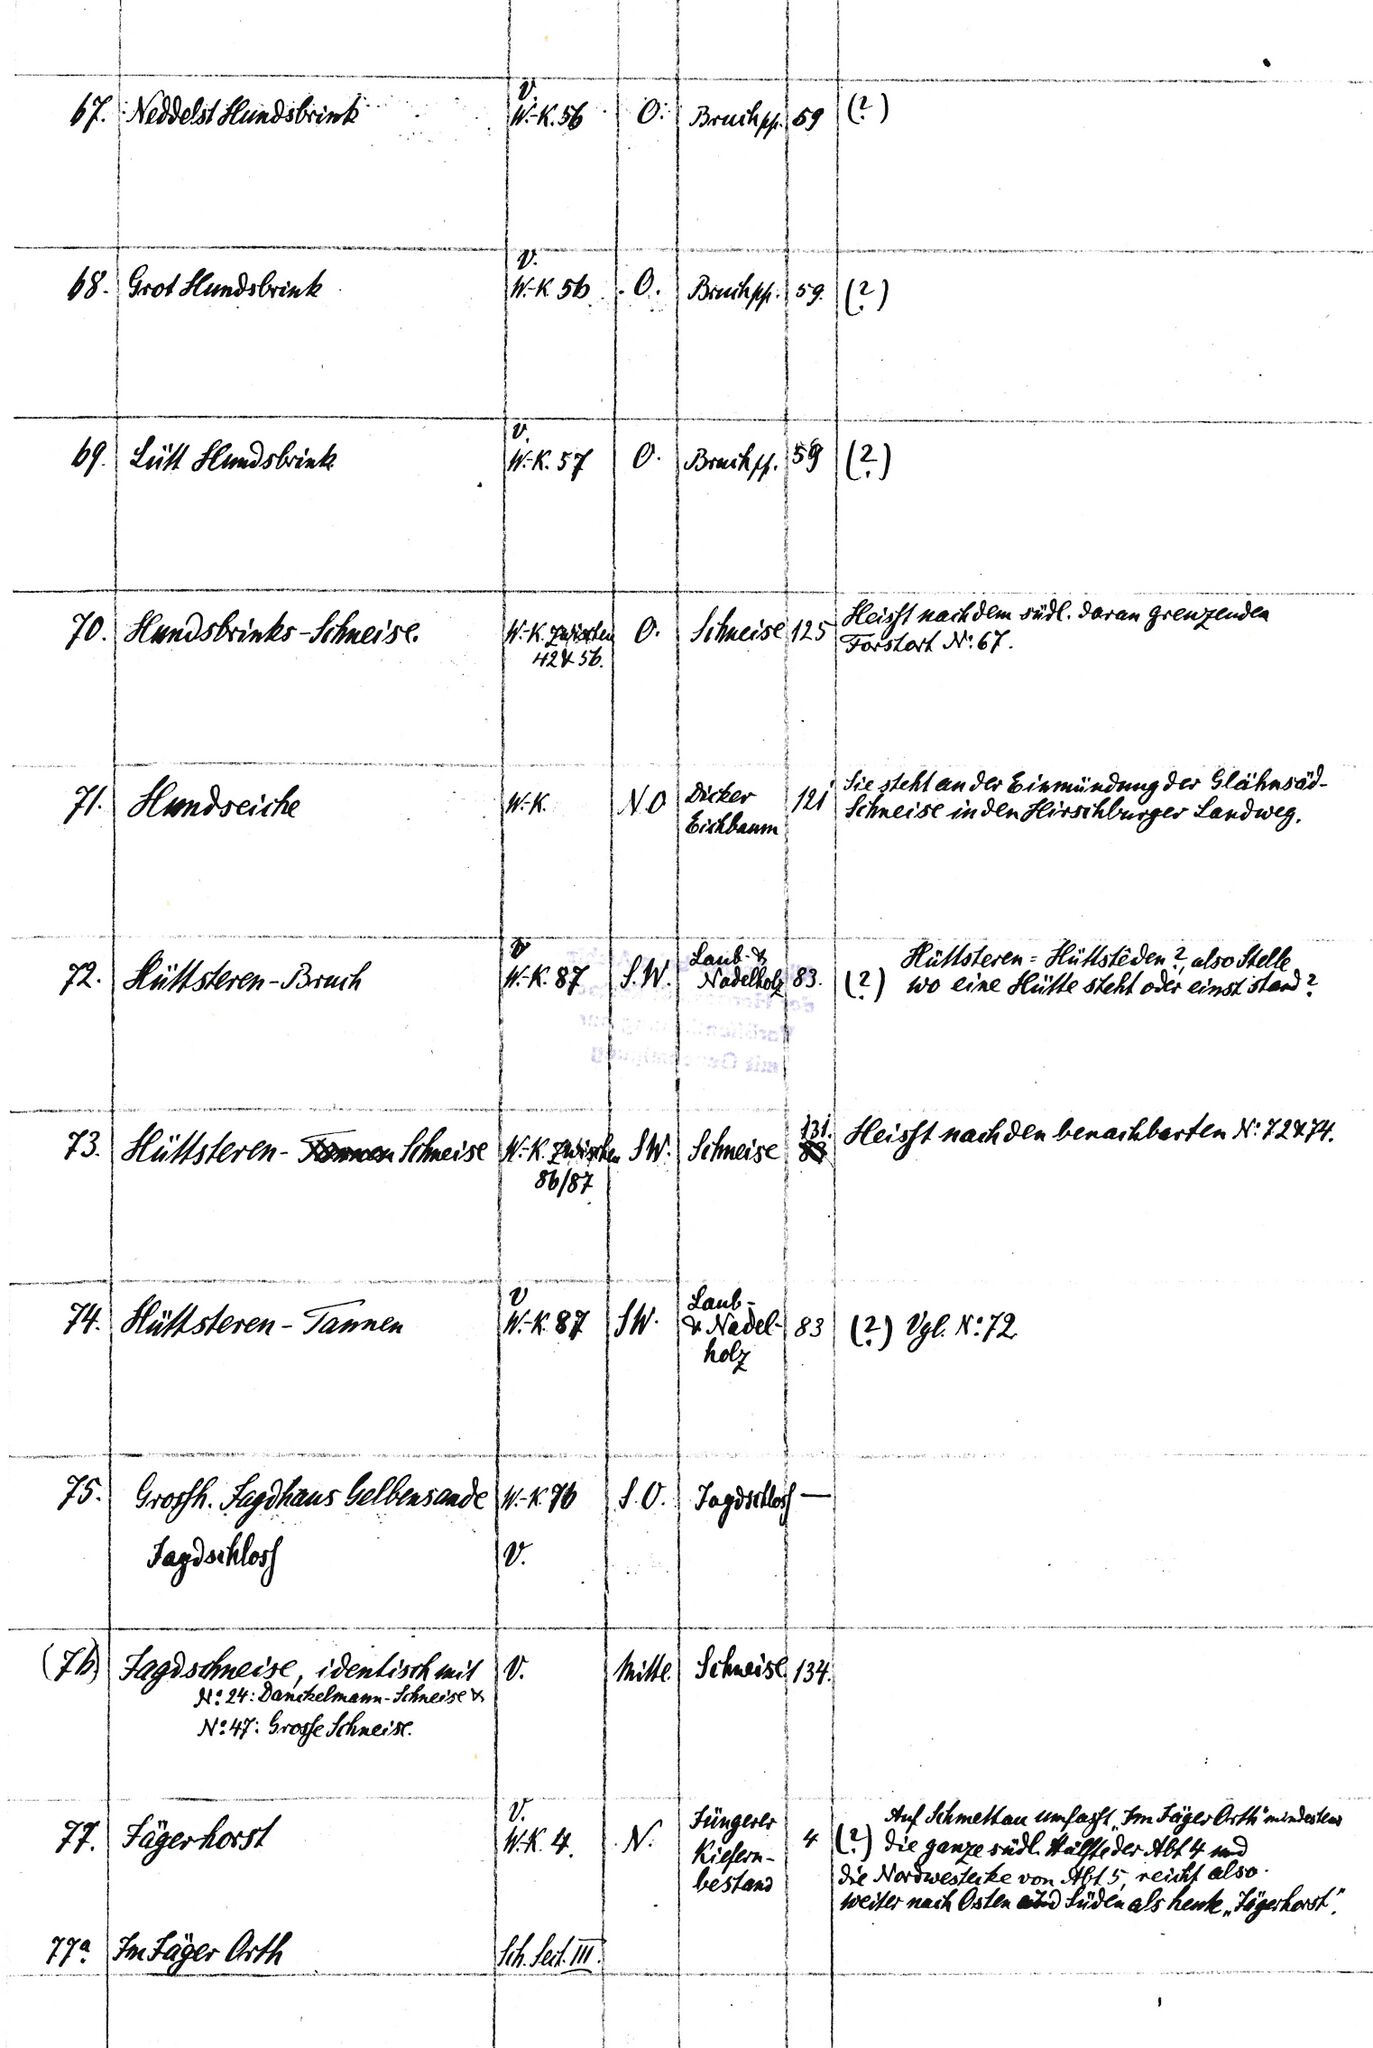 67. Neddelst Hundsbrink V. W.-K. 56 O. Bruch pp. 59 (?)
68. Grot Hundsbrink V. W.-K. 56 O. Bruch pp. 59. (?)
69. Lütt Hundsbrink V. W.-K. 57 O. Bruch pp. 59 (?)
70. Hundsbrinks-Schneise. W.-K. zwischen O. Schneise 125 Heisst nach dem südl. daran grenzenden
42 & 56. Forstort No: 67.
71. Hundseiche W.-K. N O Dicker 121 Sie steht an der Einmündung der Glähnsäd-
Eichbaum Schneise in den Hirschburger Landweg.
72. Hüttsteren-Bruch V W.-K. 87 S.W. Laub- & 83. (?) Hüttsteren = Hüttstêden?, also Stelle
Nadelholz wo eine Hütte steht oder einst stand?
73. Hüttsteren- Tannen Schneise W.-K. zwischen S W. Schneise 131. 83 Heisst nach den benachbarten No: 72 & 74.
86/87
74. Hüttsteren-Tannen V W.-K. 87 S W. Laub- 83 (?) Vgl. No: 72
& Nadel-
holz
75. Grossh. Jagdhaus Gelbensande W.-K. 76 S.O. Jagdschloss —
Jagdschloss V.
(76) Jagdschneise, identisch mit V. Mitte. Schneise 134.
No: 24: Danckelmann-Schneise &
No: 47: Grosse Schneise.
77. Jägerhorst V. W.-K. 4. N. Jüngerer 4 (?) Auf Schmettau umfasst „Im Jäger Orth" mindestens
Kiefern- die ganze südl. Hälfte der Abt 4 und
bestand die Nordwestecke von Abt 5, reicht also
weiter nach Osten und Süden als heute „Jägerhorst".
77a. Im Jäger Orth Sch. Sect. III.